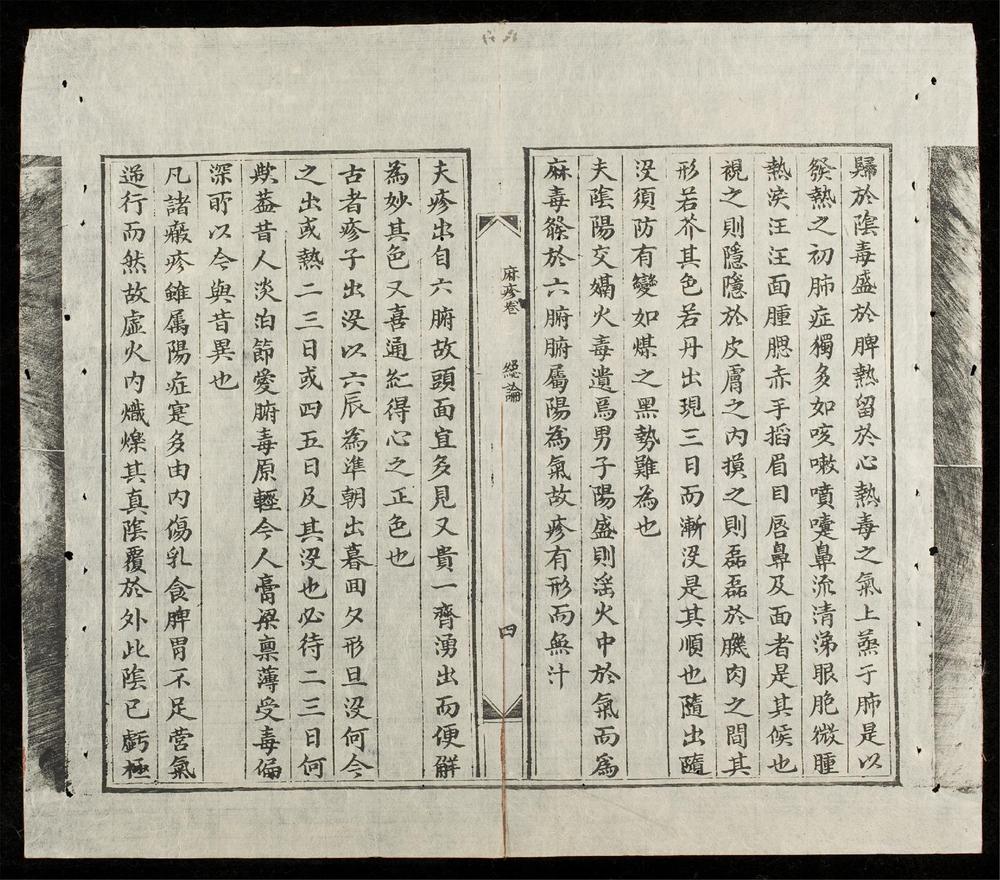 歸於陰毒盛於脾熱留於心熱毒之氣上蒸于肺是以
發熱之初肺症獨多如咳嗽噴嚏鼻流清涕眼胞微腫
熱淚汪汪面腫腮赤手搯眉目唇鼻及面者是其候也
視之則隱隱於皮膚之內摸之則磊磊於膁肉之間其
形若芥其色若丹出現三日而漸沒是其順也隨出隨
沒須防有變如煤之黑勢難為也
夫陰陽交媾火毒遺焉男子陽盛則淫火中於氣而為
麻毒發於六腑腑屬陽為氣故疹有形而無汁
麻疹卷
總論
四
夫疹出自六腑故頭面宜多見又貴一齊湧出而便鮮
為妙其色又喜通紅得心之正色也
古者疹子出沒以六辰為準朝出暮囬夕形旦沒何今
之出或熱二三日或四五日及其沒也必待二三日何
欤葢昔人淡泊節愛腑毒原輕今人膏粱禀薄受毒偏
深所以今與昔異也
凡諸癍疹雖属陽症寔多由內傷乳食脾胃不足營氣
逆行而然故虛火內熾爍其真陰覆於外此陰已虧極